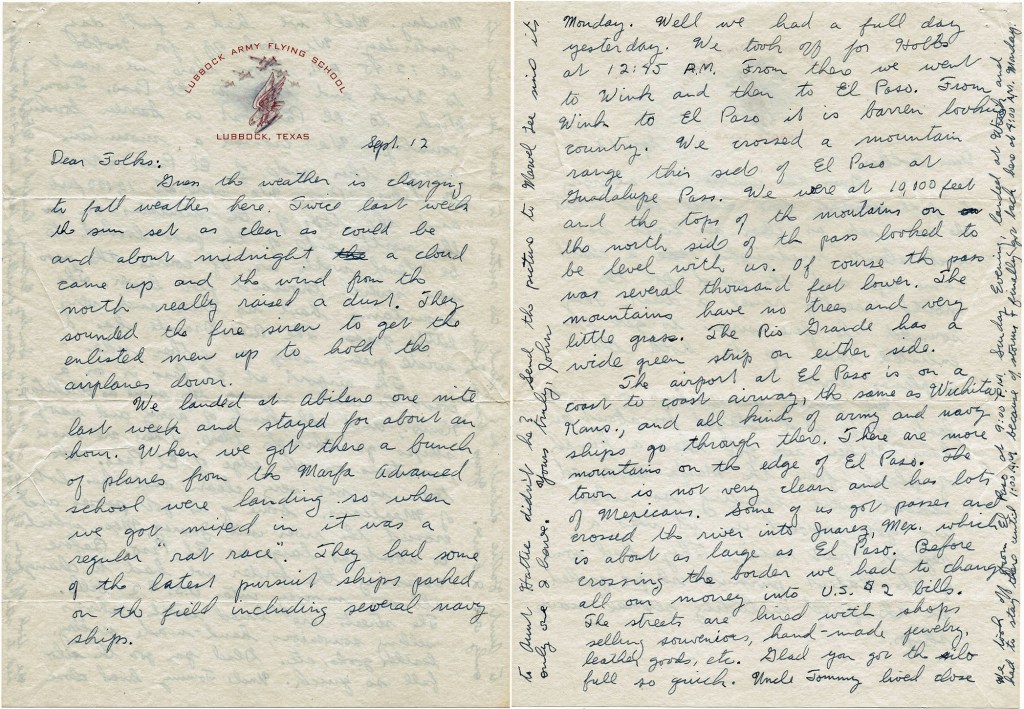 LUBBOCK ARMY FLYING SCHOOL
LUBBOCK, TEXAS
Sept. 12
Dear Folks:
Guess the weather is changing
to fall weather here. Twice last week
the sun set as clear as could be
and about midnight the a cloud
came up and the wind from the
north really raised a dust. They
sounded the fire siren to get the
enlisted men up to hold the
airplanes down.
We landed at Abilene one nite
last week and stayed for about an
hour. When we got there a bunch
of planes from the Marfa Advanced
school were landing so when
we got mixed in it was a
regular "rat race". They had some
of the latest pursuit ships parked
on th field including several navy
ships.
Monday. Well we had a full day
yesterday. We took off for Hobbs
at 12:45 A.M. From there we went
to Wink and then to El Paso. From
Wink to El Paso it is barren looking
country. We crossed a mountain
range this side of El Paso at
Guadalupe Pass. We were at 10,100 feet
and the tops of th moutains on
the north side of th pass looked to
be level with us. Of course th pass
was several thousand feet lower. The
mountains have no trees and very
little grass. The Rio Grande has a
wide green strip on either side.
The airport at El Paso is on a
coast to coast airway, the same as Wichita,
Kans., and all kinds of army and navy
ships go through there. There are more
mountains on the edge of El Paso. The
town is not very clean and has lots
of Mexicans. Some of us got passes and
crossed the river into Juarez, Mex. which
is about as large as El Paso. Before
crossing the border we had to change
all our money into U.S. $2 bills.
The streets are lined with shops
selling souvenirs, hand-made jewelry,
leather goods, etc. Glad you got th silo
full so quick. Uncle Tommy lived close
to Aunt Hattie didn't he? Send the picture to Marvel Lee and its
only one I have. Yours truly, John
We took off from El Paso at 9:00 P.M. Sunday Evening, landed at Wink and
had to stay there until 1:00 A.M. because of storms & finally got back here at 4:00 A.M. Monday.